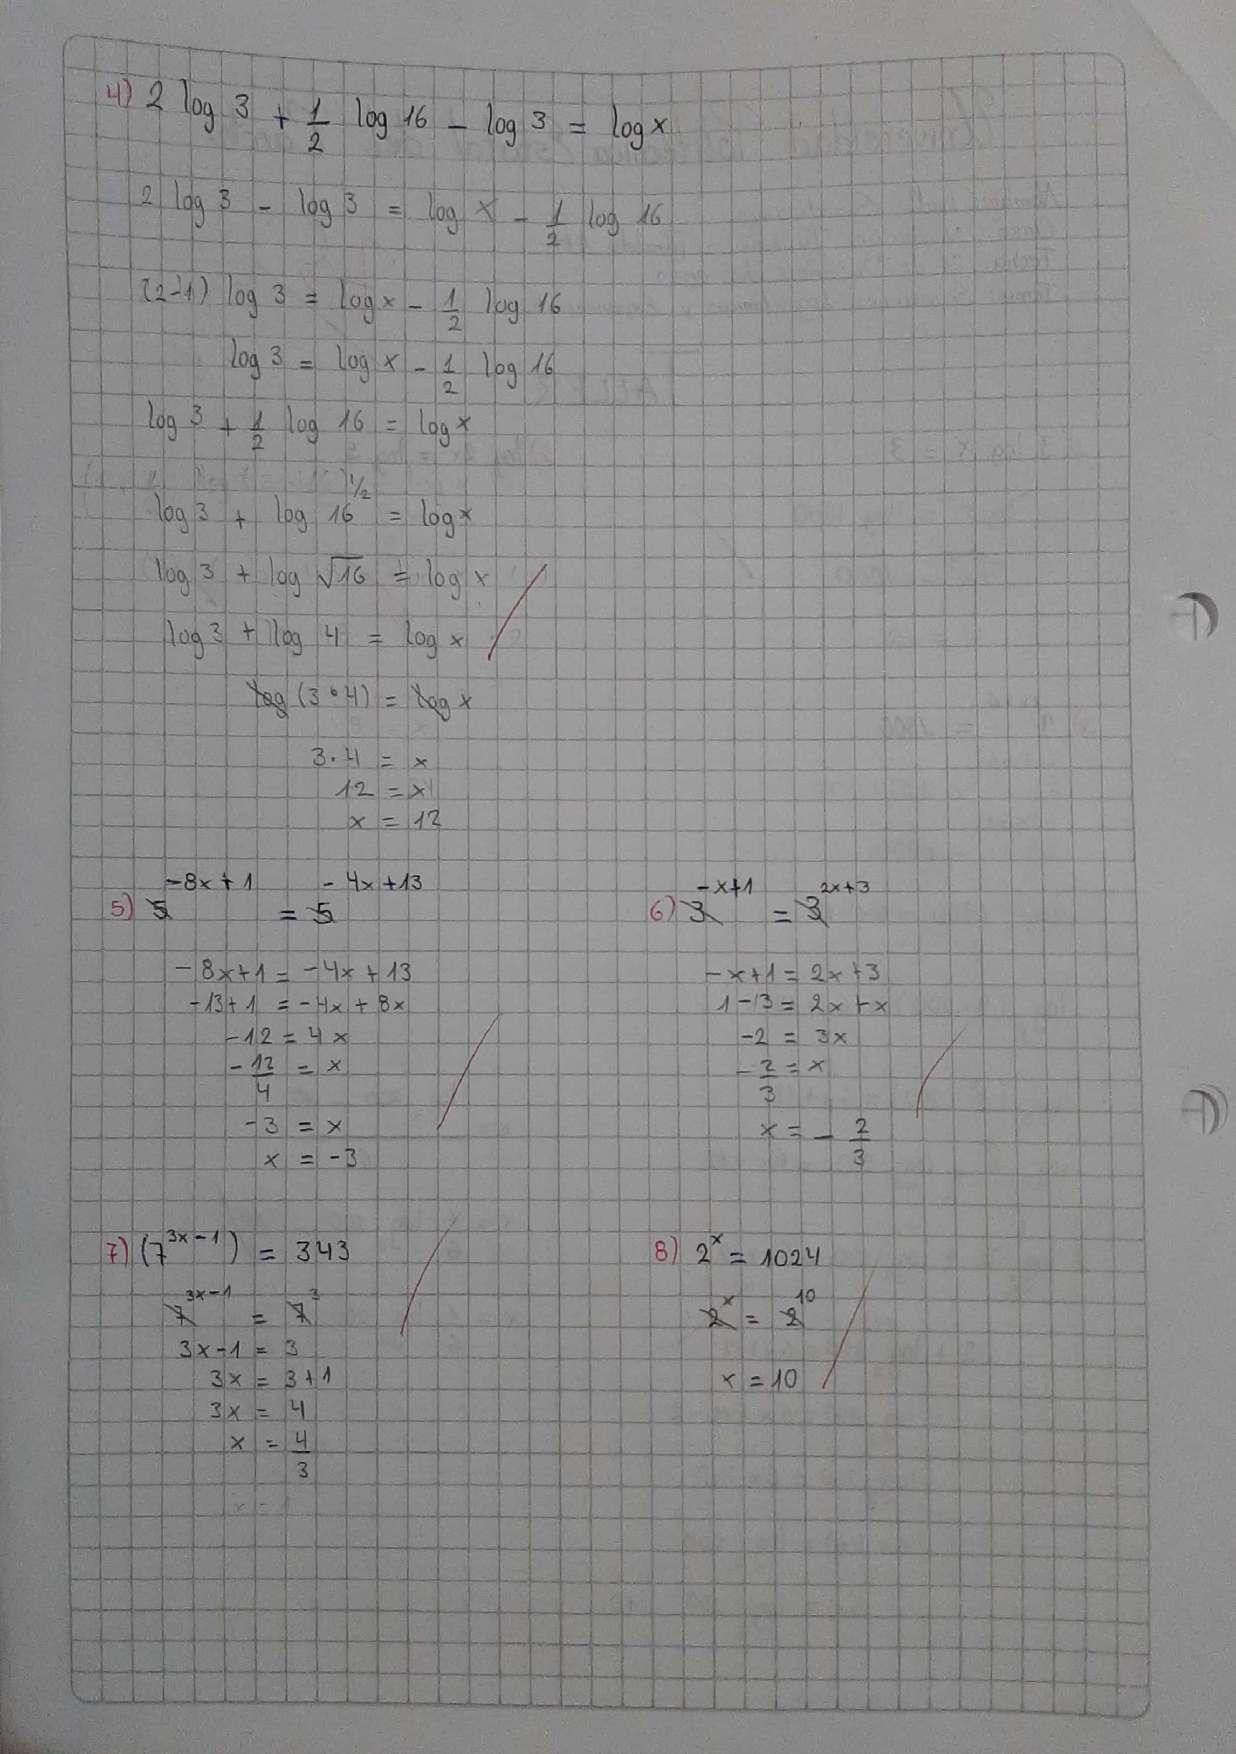 4) 2 log 3 + 1/2 log 16 - log 3 = log x
2 log 3 - log 3 = log x - 1/2 log 16
(2-1) log 3 = log x - 1/2 log 16
log 3 = log x - 1/2 log 16
log 3 + 1/2 log 16 = log x
log 3 + log 16^1/2 = log x
log 3 + log √16 = log x
log 3 + log 4 = log x
log (3•4) = log x
3·4 = x
12 = x
x = 12
5) 5^-8x+1 = 5^-4x+13
-8x+1 = -4x+13
-13+1 = -4x+8x
-12 = 4x
-12/4 = x
-3 = x
x = -3
6) 3^-x+1 = 3^2x+3
-x+1 = 2x+3
1-3 = 2x+x
-2 = 3x
-2/3 = x
x = -2/3
7) (7^3x-1) = 343
7^3x-1 = 7^3
3x-1 = 3
3x = 3+1
3x = 4
x = 4/3
8) 2^x = 1024
2^x = 2^10
x = 10